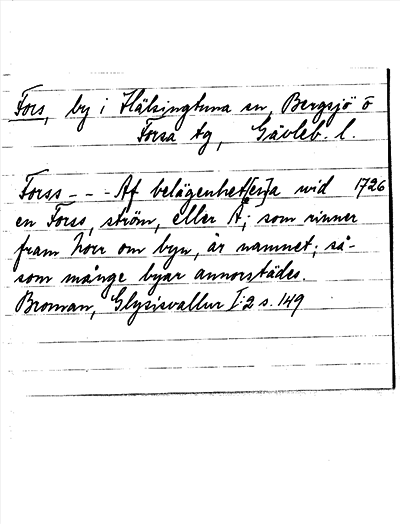 Fors, by i Hälsingtuna sn, Bergsjö o
Forsa tg, Gävleb. l.
Forss - - - Af belägenhet[en]a wid 1726
en Forss, ström, eller Å; som rinner
fram horr om byn, är namnet; så-
som månge byar annorstädes.
Broman, Glysisvallur I:2 s. 149